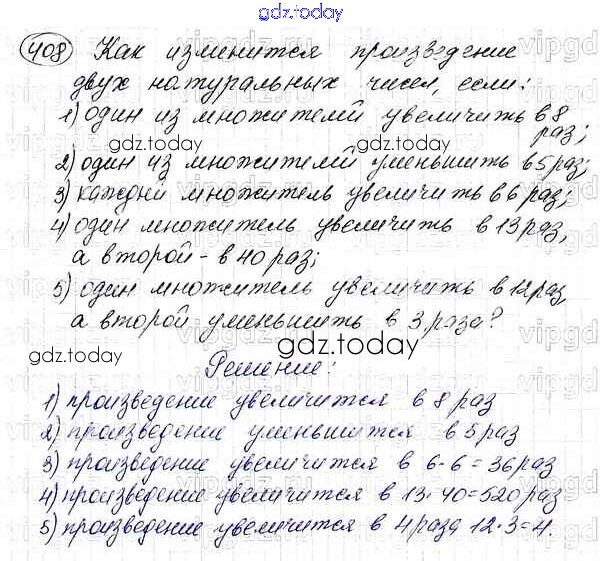 gdz.today
408 Как изменится произведение
двух натуральных чисел, если:
1) один из множителй увеличить в 8
раз;
gdz.today gdz.today
2) один из множителей уменьшить в 5 раз;
3) каждый множитель увеличить в 6 раз;
4) один множитель увеличить в 13 раз,
а второй - в 40 раз;
5) один множитель увеличить в 12 раз,
а второй уменьшить в 3 раза?
gdz.today gdz.today
Решение:
1) произведение увеличится в 8 раз
2) произведение уменьшится в 5 раз
3) произведение увеличится в 6·6=36 раз
4) произведение увеличится в 13·40=520 раз
5) произведение увеличится в 4 раза 12:3=4.